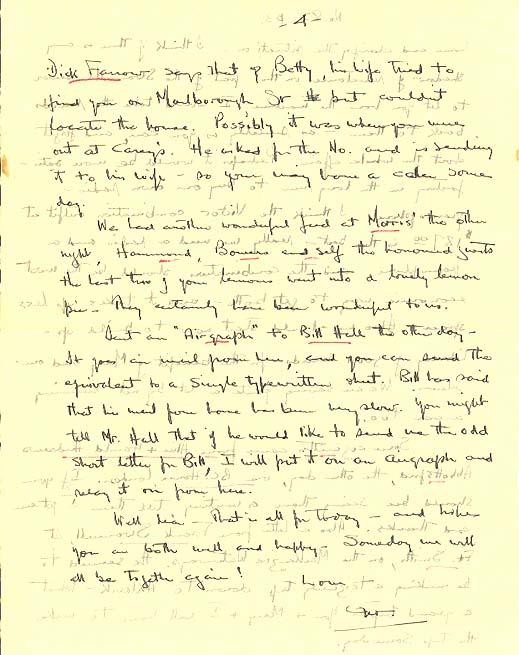 - 4 -
Dick Farrow says that Betty, his wife tried to
find you on Marlborough St but couldn't
locate the house. Possibly it was when you were
out at Carey's. He asked for the No. and is sending
it to his wife - so you may have a caller some
day.
We had another wonderful feed at Morris' the other
night, Hammond, and self the honoured guests
the last two of your lemons went into a lovely lemon
pie - They certainly have been wonderful to us.
Sent an "Airgraph" to Bill Hall the other day -
It goes air mail from here, and you can send the
equivalent to a single typewritten sheet. Bill has said
that his mail from home has been very slow. You might
tell Mr. Hall that if he would like to send me the odd
short letter for Bill, I will put it on an airgraph and
relay it on from here.
Well dear - That is all for today - and hope
you are both well and happy. Someday we will
all be together again!
Love